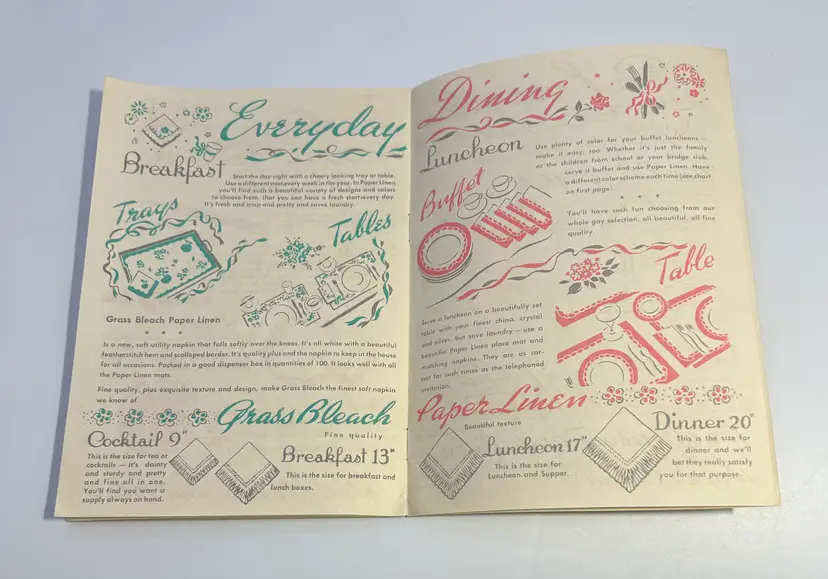 Everyday
Breakfast
Start the day right with a cheery looking tray or table.
Use a different mat every week in the year. In Paper Linen
you'll find such a beautiful variety of designs and colors
to choose from, that you can have a fresh start every day.
It's fresh and crisp and pretty and saves laundry.
Trays
Tables
Grass Bleach Paper Linen
Is a new, soft utility napkin that falls softly over the knees. It's all white with a beautiful
featherstitch hem and scalloped border. It's quality plus and the napkin to keep in the house
for all occasions. Packed in a good dispenser box in quantities of 100. It looks well with all
the Paper Linen mats.
Fine quality, plus exquisite texture and design, make Grass Bleach the finest soft napkin
we know of.
Grass Bleach
Fine quality
Cocktail 9"
This is the size for tea or
cocktails — it's dainty
and sturdy and pretty
and fine all in one.
You'll find you want a
supply always on hand.
Breakfast 13"
This is the size for breakfast and
lunch boxes.
Dining
Luncheon
Use plenty of color for your buffet luncheons —
make it easy, too. Whether it's just the family
or the children from school or your bridge club,
serve it buffet and use Paper Linen. Have
a different color scheme each time (see chart
on first page).
Buffet
You'll have such fun choosing from our
whole gay selection, all beautiful, all fine
quality.
Table
Serve a luncheon on a beautifully set
table with your finest china, crystal
and silver, but save laundry — use a
beautiful Paper Linen place mat and
matching napkins. They are as cor-
rect for such times as the telephoned
invitation.
Paper Linen
Beautiful texture
Luncheon 17"
This is the size for
Luncheon and Supper.
Dinner 20"
This is the size for
dinner and we'll
bet they really satisfy
you for that purpose.